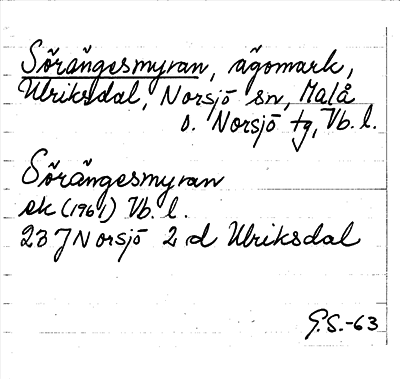 Sörängesmyran, ägomark,
Ulriksdal, Norsjö sn, Malå
o. Norsjö tg, Vb. l.
Sörängesmyran
ek (1961) Vb. l.
23 J Norsjö 2 d Ulriksdal
G.S.-63